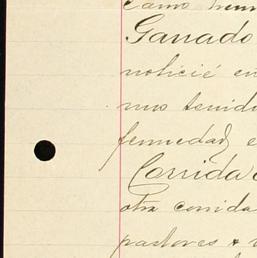 como
Ganado
noticié en
mos tenido
fermedad, e
Corrida
otra corrida
pastores +